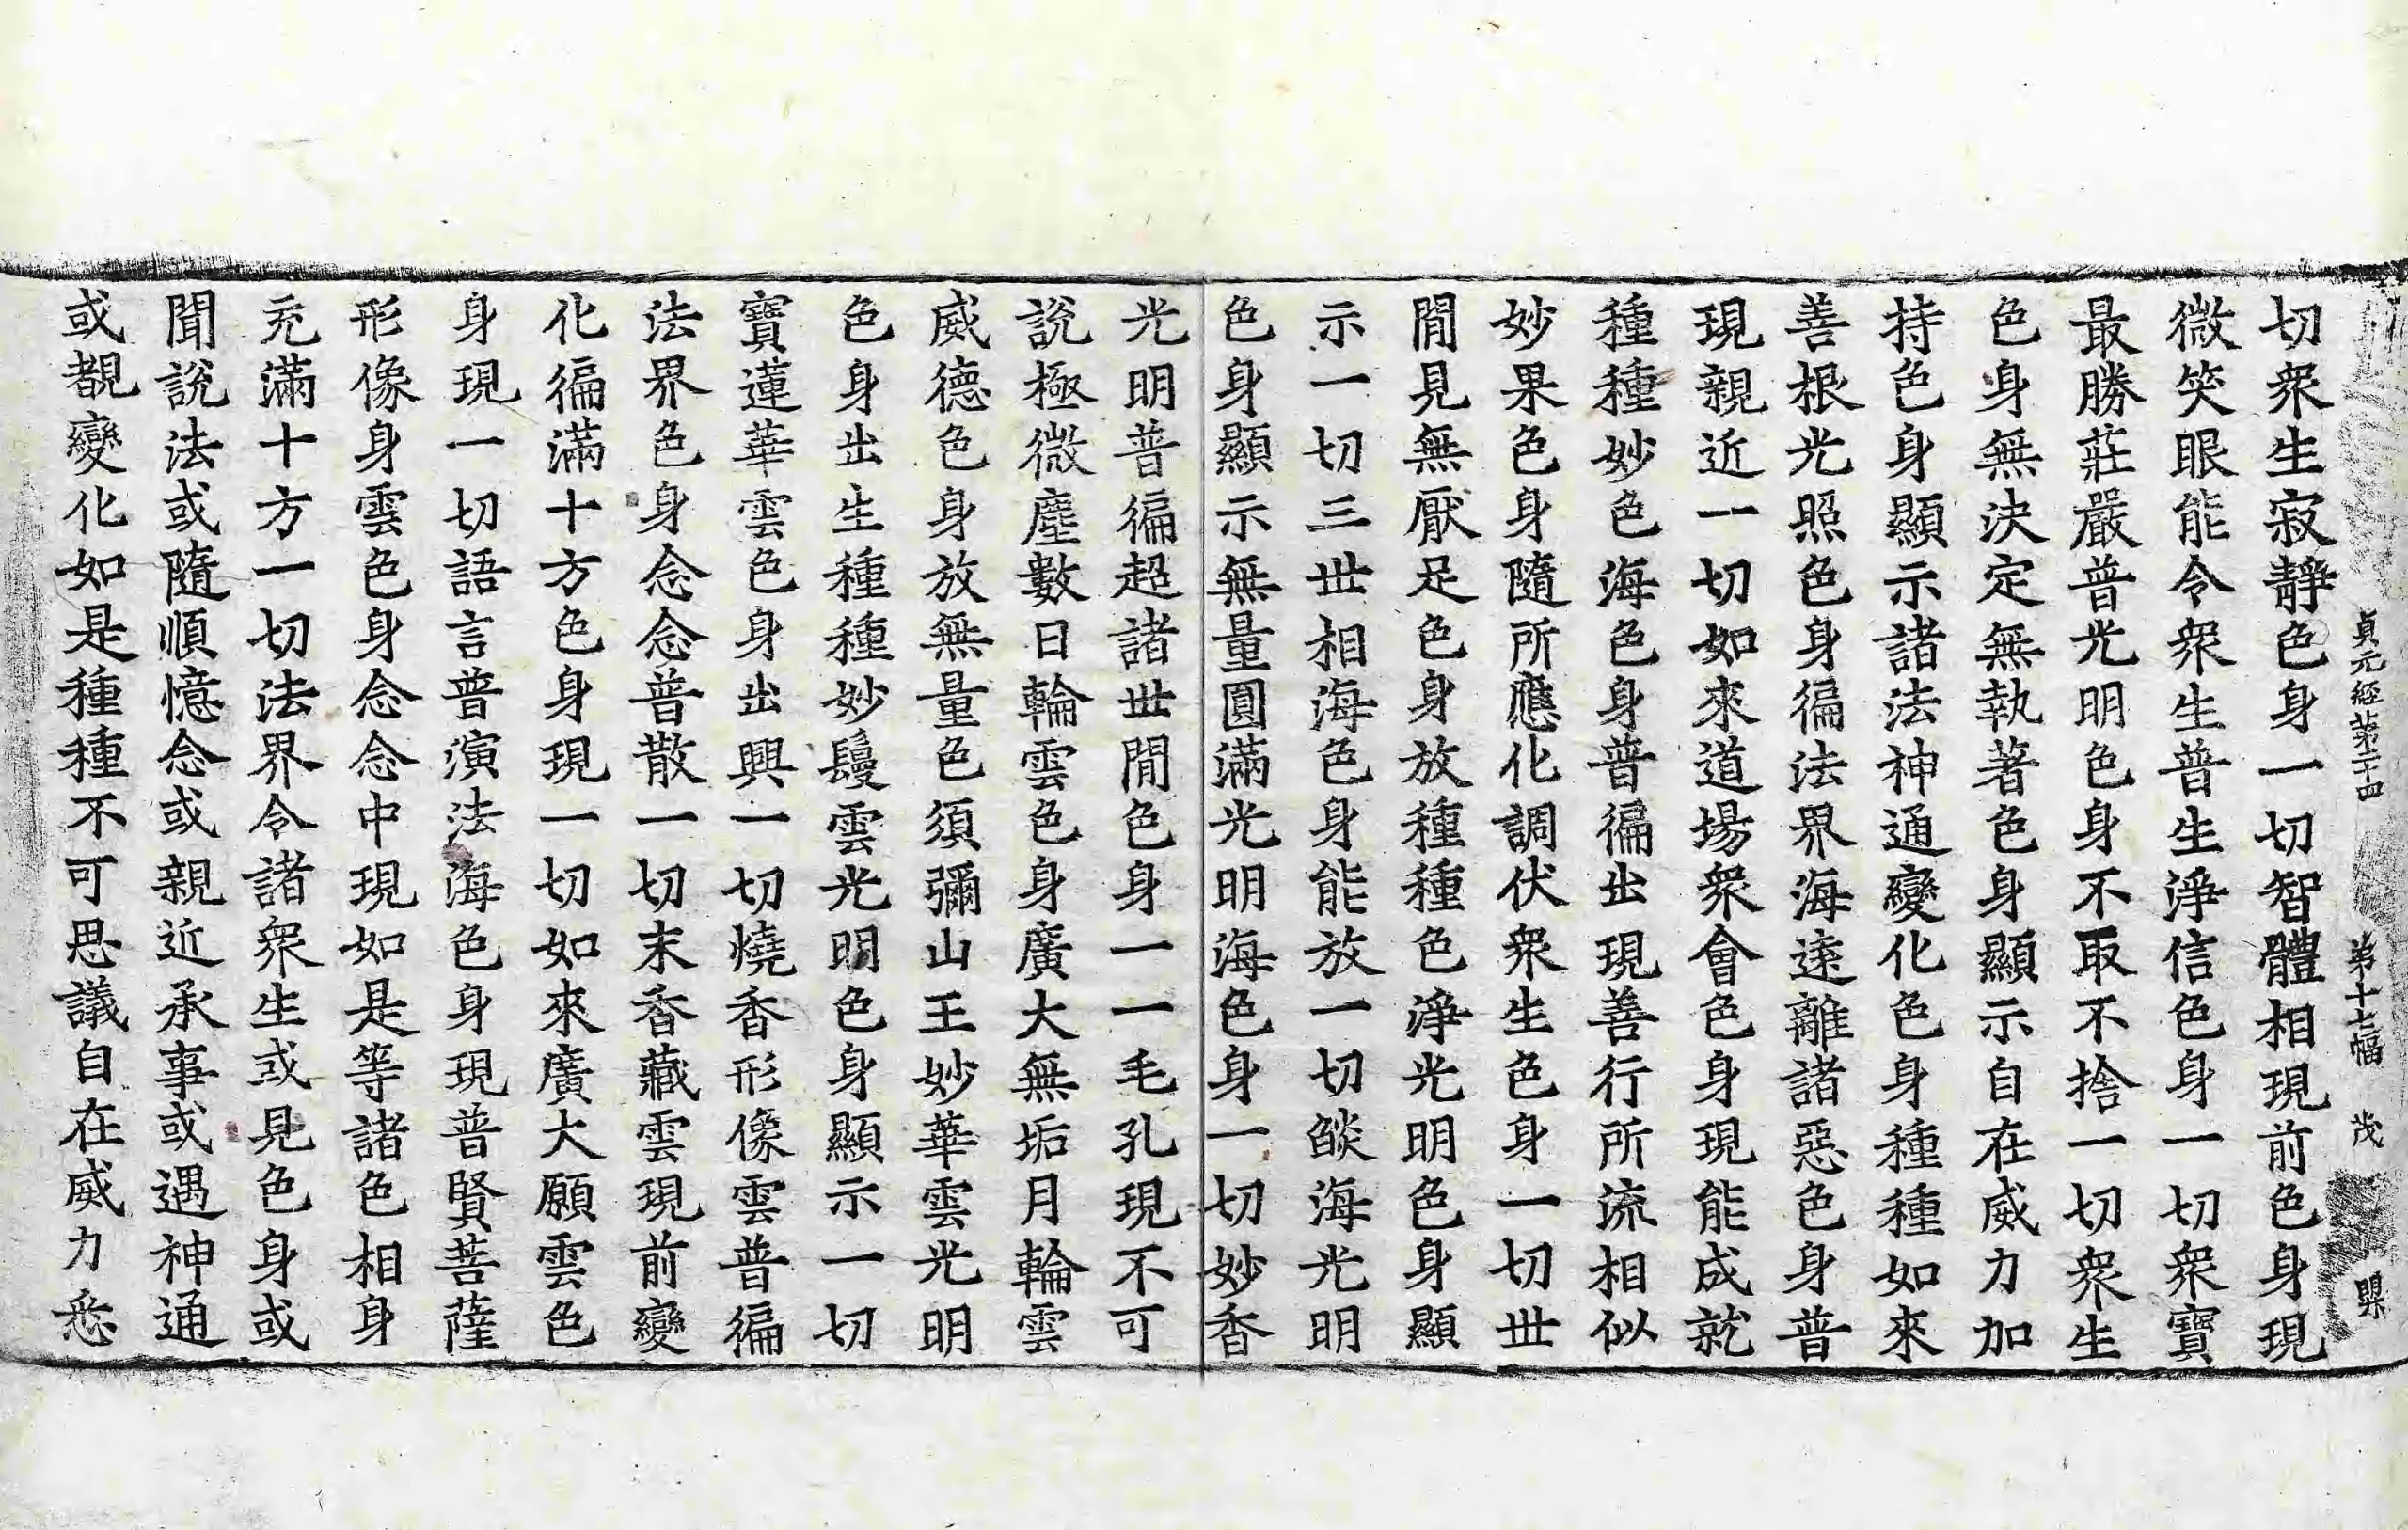 貞元經第二十四　第十七幅　茂　㬎
切衆生寂靜色身一切智體相現前色身現
微笑眼能令衆生普生淨信色身一切衆寶
最勝莊嚴普光明色身不取不捨一切衆生
色身無決定無執著色身顯示自在威力加
持色身顯示諸法神通變化色身種種如來
善根光照色身徧法界海遠離諸惡色身普
現親近一切如來道場衆會色身現能成就
種種妙色海色身普徧出現善行所流相似
妙果色身隨所應化調伏衆生色身一切世
閒見無厭足色身放種種色淨光明色身顯
示一切三世相海色身能放一切燄海光明
色身顯示無量圓滿光明海色身一切妙香
光明普徧超諸世閒色身一一毛孔現不可
說極微塵數日輪雲色身廣大無垢月輪雲
威德色身放無量色須彌山王妙華雲光明
色身出生種種妙鬘雲光明色身顯示一切
寶蓮華雲色身出興一切燒香形像雲普徧
法界色身念念普散一切末香藏雲現前變
化徧滿十方色身現一切如來廣大願雲色
身現一切語言普演法海色身現普賢菩薩
形像身雲色身念念中現如是等諸色相身
充滿十方一切法界令諸衆生或見色身或
聞說法或隨順憶念或親近承事或遇神通
或覩變化如是種種不可思議自在威力悉